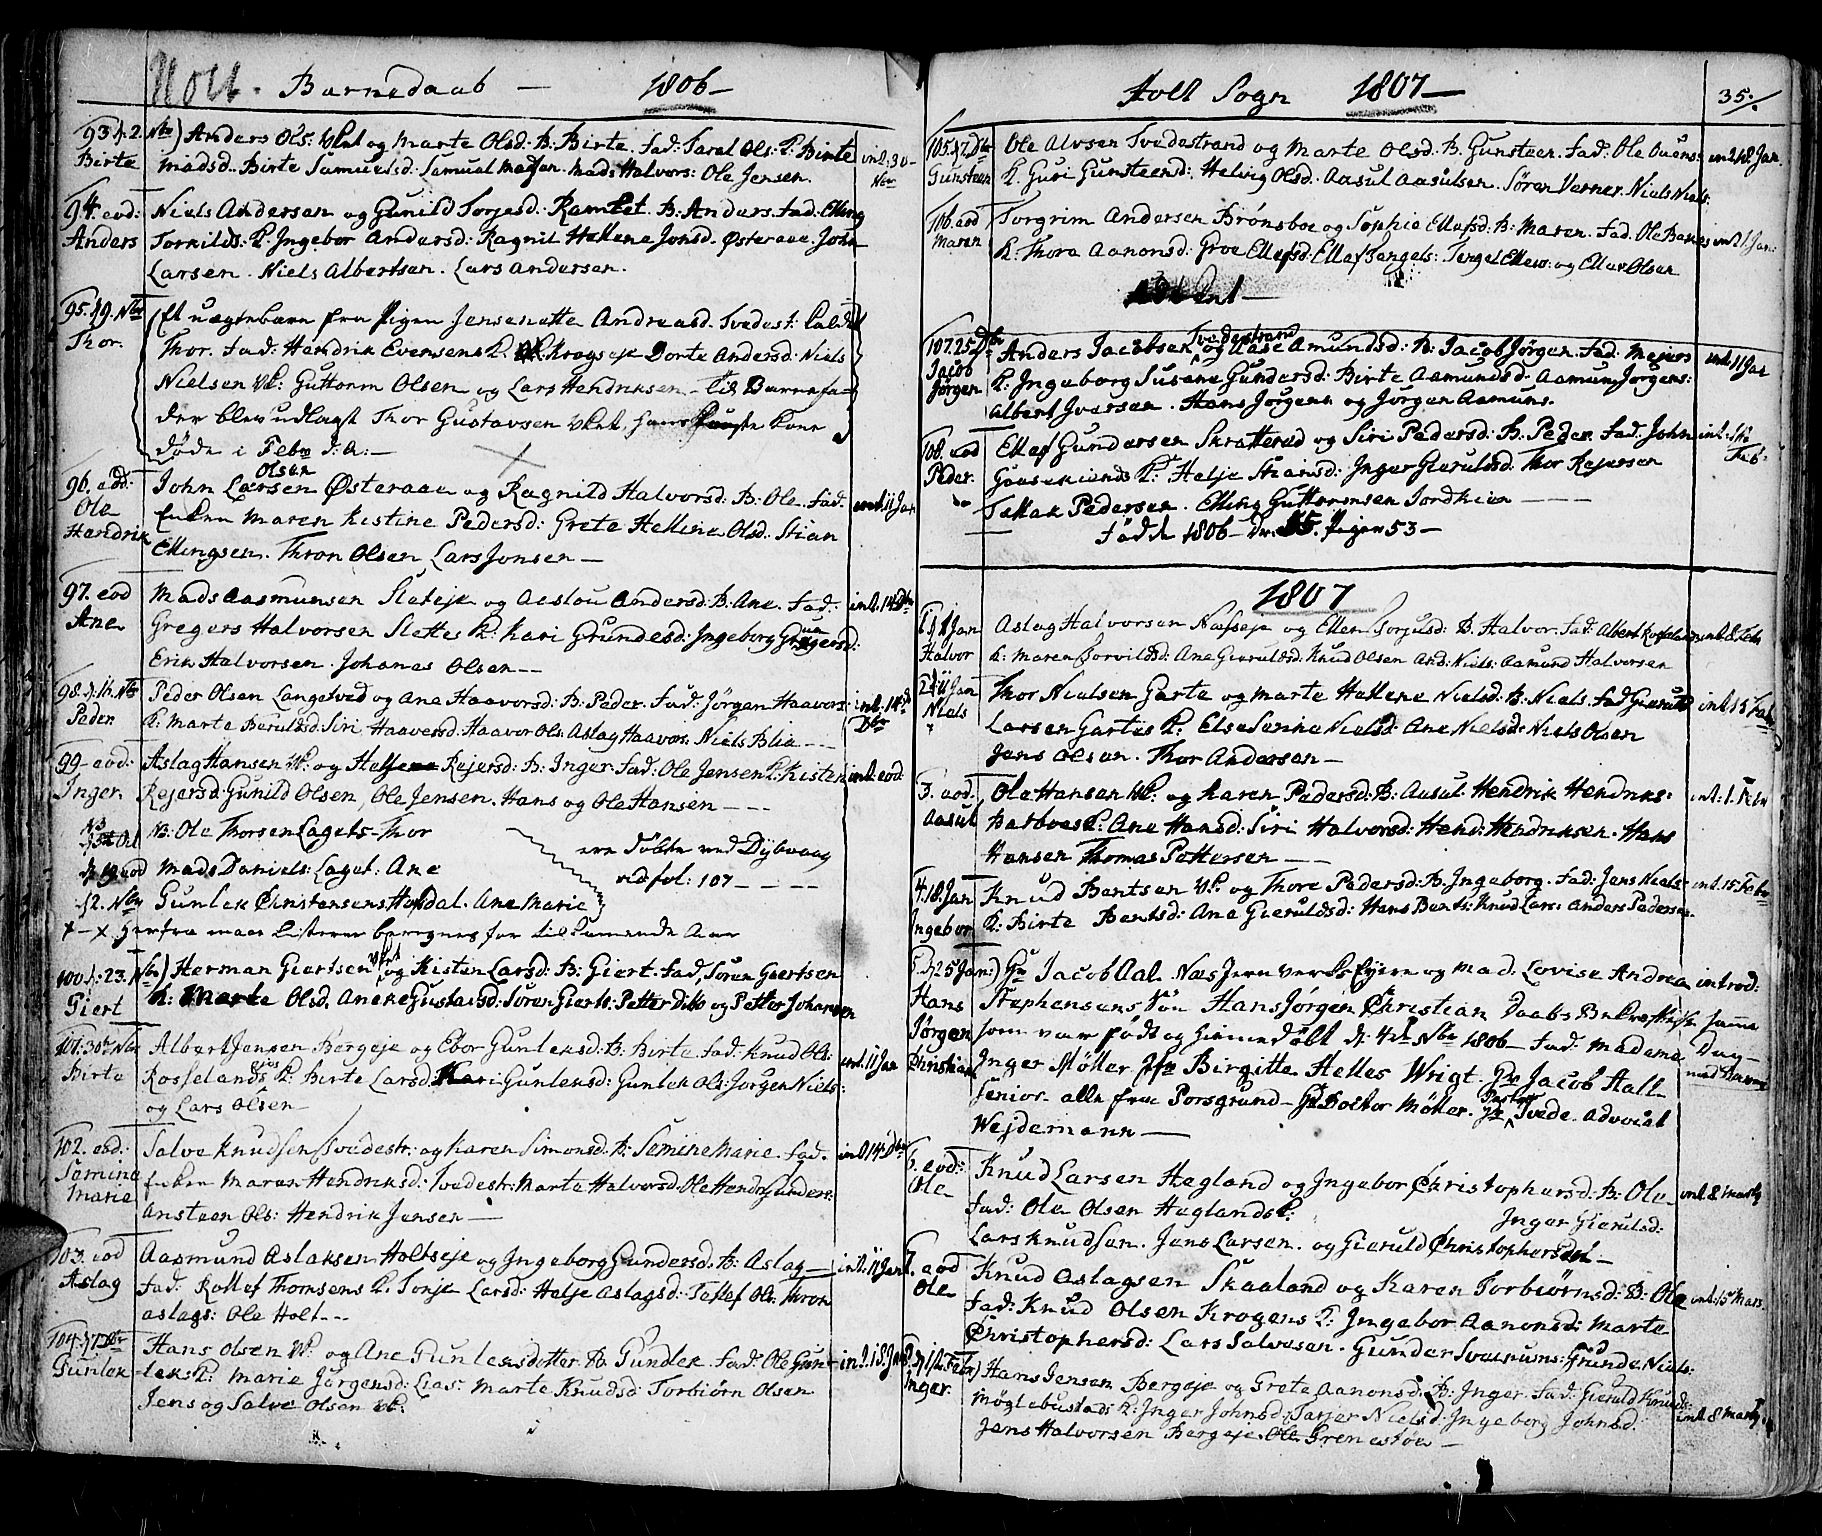 Holt. Barnedaab — 1806 —
93. d. 2. Nbr) Anders Ols: Vkt og Marte Olsd: B: Birte. Fad: Taral Ols: K: Birte int. 30
Birte Madsd. Birte Samuelsd: Samual Madsen. Mads Halvors: Ole Jensen. Nbr
94. eod: Niels Andersen og Gunild Torjesd: Ramlet. B: Anders. Fad: Elling
Anders Torkilds: K: Ingebor Andersd: Ragnil Hellene Jonsd. Østeraae. John
Larsen. Niels Albertsen. Lars Andersen.
95. d 9. Nbr Et uægte barn fra Pigen Jensenette Andreasd. Tvedest: kaldet
Thor. Thor. Fad: Hendrik Evensens K. Krogseje Dorte Andersd: Niels
Nielsen Vk: Guttorm Olsen og Lars Hendriksen — Til Barnefa=
der blev udlagt Thor Gustavsen Vket, hans kone
døde i Febr d: A: —
96. eod: John Larsen Olsen Østeraae og Ragnild Halvorsd: B: Ole. Fad: int. 11 Jan
Ole Enken Maren Kistine Pedersd: Grete Hellene Olsd. Stian
Hendrik Ellingsen. Thron Olsen Lars Jonsen —
97. eod Mads Aasmunsen Sletteje og Aeslou Andersd: B: Ane. Fad: int. 14 Dbr
Ane Gregers Halvorsen Slettes K: Kari Grundesd: Ingeborg Gregersd:
Erik Halvorsen. Johanes Olsen —
98. d. 16. Nbr Peder Olsen Langetved og Ane Haavorsd: B: Peder. Fad: Jørgen Haavors: int. 14
Peder. K: Marte Beruldsd: Siri Haavorsd: Haavor Ols: Aslag Haavors: Niels Blia — Dbr
99. eod: Aslag Hansen Vk: og Rejersd: B: Inger. Fad: Ole Jensen K: Kisten int. eod:
Inger. Rejersd: Gunild Olsen, Ole Jensen. Hans og Ole Hansen — — —
NB: Ole Thorsen Lagets - Thor ere døbte ved Dybvaag
d. 19 eod Mads Daniels: Laget. Ane vid fol: 107 — — —
d 2. Nbr Gunlek Christensens Hovdal. Ane Marie
+ — x Herfra maae Listerne beregnes for tilkommende Aar
100. d. 23. Nbr) Herman Giertsen Vket og Kisten Larsd: B: Giert. Fad: Søren Giertsen
Giert K: Marte Olsd. Aneke Gustavsd: Søren Gierts: Petter Dito og Petter Johansen
101. 30te Nbr Albert Jensen Bergeje og Ebor Gunleksd: B: Birte. Fad: Knud Ols: int. 11 Jan
Birte Rosselands K: Birte Larsd. Kari Gunleksd: Gunlek Ols: Jørgen Niels:
og Lars Olsen —
102. eod: Salve Knudsen Tvedestr: og Karen Simonsd. B: Semine Marie. Fad. int. 14 Dbr
Semine Enken Maren Hendriksd: Tvedestr: Marte Halvorsd: Ole Hendr: Gunders:
Marie Ansteen Ols: Hendrik Jensen —
103. eod Aasmund Aslaksen Holtseje og Ingeborg Gundersd: B: Aslag — int. 11 Jan
Aslag Fad: Rollef Thomsens K. Tonje Larsd: Helje Aslagsd: Tellef Ols. Thron
Aslags: Ole Holt — —
104. d 7 Dbr Hans Olsen Vk. og Ane Gunleksdotter. B: Gunlek. Fad: Ole Gun= int. 18. Jan
Gunlek leks K: Marie Jørgensd: Lias: Marte Knudsd. Torbiørn Olsen
Jens og Salve Olsen Vk.
Holt Sogn 1807 — 35.
105. d 7. Dbr Ole Alvsen Tvedestrand og Marte Olsd. B: Gunsteen. Fad: Ole Auens: int. 18. Jan
Gunsteen K. Guri Gunsteensd: Helvig Olsd. Aasul Aasulsen. Søren Verner. Niels Niels.
106. eod Torgrim Andersen Brønsboe og Sophie Ellefsd: B: Maren. Fad. Ole Banes int. 1 Jan:
Maren K: Thora Aanonsd: Groe Ellefsd: Ellef Bangels: Tengel Ellevs: og Ellev Olsen
Advent —
107. 25 Dbr Anders Jacobsen Tvedestrand og Aase Amundsd: B: Jacob Jørgen. Fad: Majors int. 11 Jan
Jacob K: Ingeborg Susane Gundersd: Birte Aamundsd: Aamun Jørgens:
Jørgen Albert Iversen. Hans Jørgens: og Jørgen Aamuns.
108. eod Ellef Gundersen Skratterud og Siri Pedersd: B: Peder. Fad: John int. Feb:
Peder. K: Helje Steansd: Inger Gieruldsd: Thor Rejersen
Tellak Pedersen. Elling Guttormsen Sordheia — — —
Fødde 1806 — Dr. 55. Piger 53 —
1807
1. d 1 Jan Aslag Halvorsen Næsseje og Ellen Torjusd: B. Halvor. Fad: Albert int. 8 Feb
Halvor K: Maren Torvildsd: Ane Gieruldsd: Knud Olsen And: Niels: Aamund Halvorsen
2. d 11 Jan Thor Nielsen Garte og Marte Hellene Nielsd: B: Niels. Fad Gieruld int. 15 Feb
Niels Larsen Gartes K: Else Senine Nielsd: Ane Nielsd: Niels Olsen
Jens Olsen. Thor Andersen —
3. eod: Ole Hansen Vk: og Karen Pedersd: B: Aasul. Hendrik Hendriks: int: 1. Febr
Aasul Barboes K: Ane Hansd: Siri Halvorsd: Hend: Hendriksen. Hans
Hansen Thomas Pettersen — —
4. 18. Jan Knud Bentsen Vk. og Thore Pedersd: B. Ingeborg. Fad: Jens Niels: int. 15. Febr
Ingebor K: Birte Bentsd: Ane Gieruldsd: Hans Bents: Knud Lars: Anders Pedersen
5. d 25 Jan:) Hr Jacob Aal. Næs Jernverks Ejere og Mad. Lovise Andrea introd:
Hans Stephensens Søn Hans Jørgen Christian Daabs Bekræftelse samme
Jørgen som var født og hiemmedøbt d: 4de Nbr 1806 — Fad: Madame Dag —
Christian Inger Møller Jfr Birgitte Helles Wrigt. Hr Jacob Aall
Senior. alle fra Porsgrund — Hr Doctor Møller. Hr Pastor Tvede. Advocat
Weidemann —
6. eod: Knud Larsen Hegland og Ingebor Christophersd: B: Ole int. 8 Marty
Ole Fad: Ole Olsen Heglands K: Inger Gierulsd:
Lars Knudsen. Jens Larsen. og Gieruld Christophersen —
7. eod Knud Aslagsen Skaaland og Karen Torbiørnsd: B: Ole int: 15 Mars
Ole Fad: Knud Olsen Krogens K: Ingebor Aanonsd: Marte
Christophersd: Lars Salvesen. Gunder Grunde Niels:
8. d 12. Febr) Hans Jensen Bergeje og Grete Aanonsd: B: Inger. Fad: Gieruld Knuds:
Inger. Møglebustads K: Inger Johnsd: Tarjer Nielsd: Ingeborg Johnsd. int 8 Marty
Jens Halvorsen Bergeje. Ole Grenestøe —